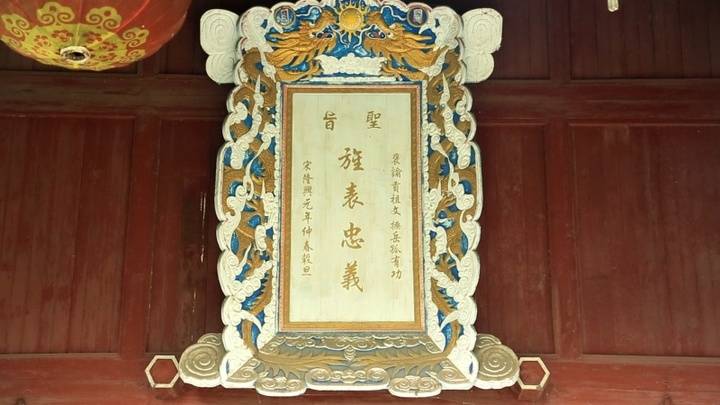 聖旨
褒諭貢祖文撫岳孤有功
旌表忠義
宋隆興元年仲春穀旦